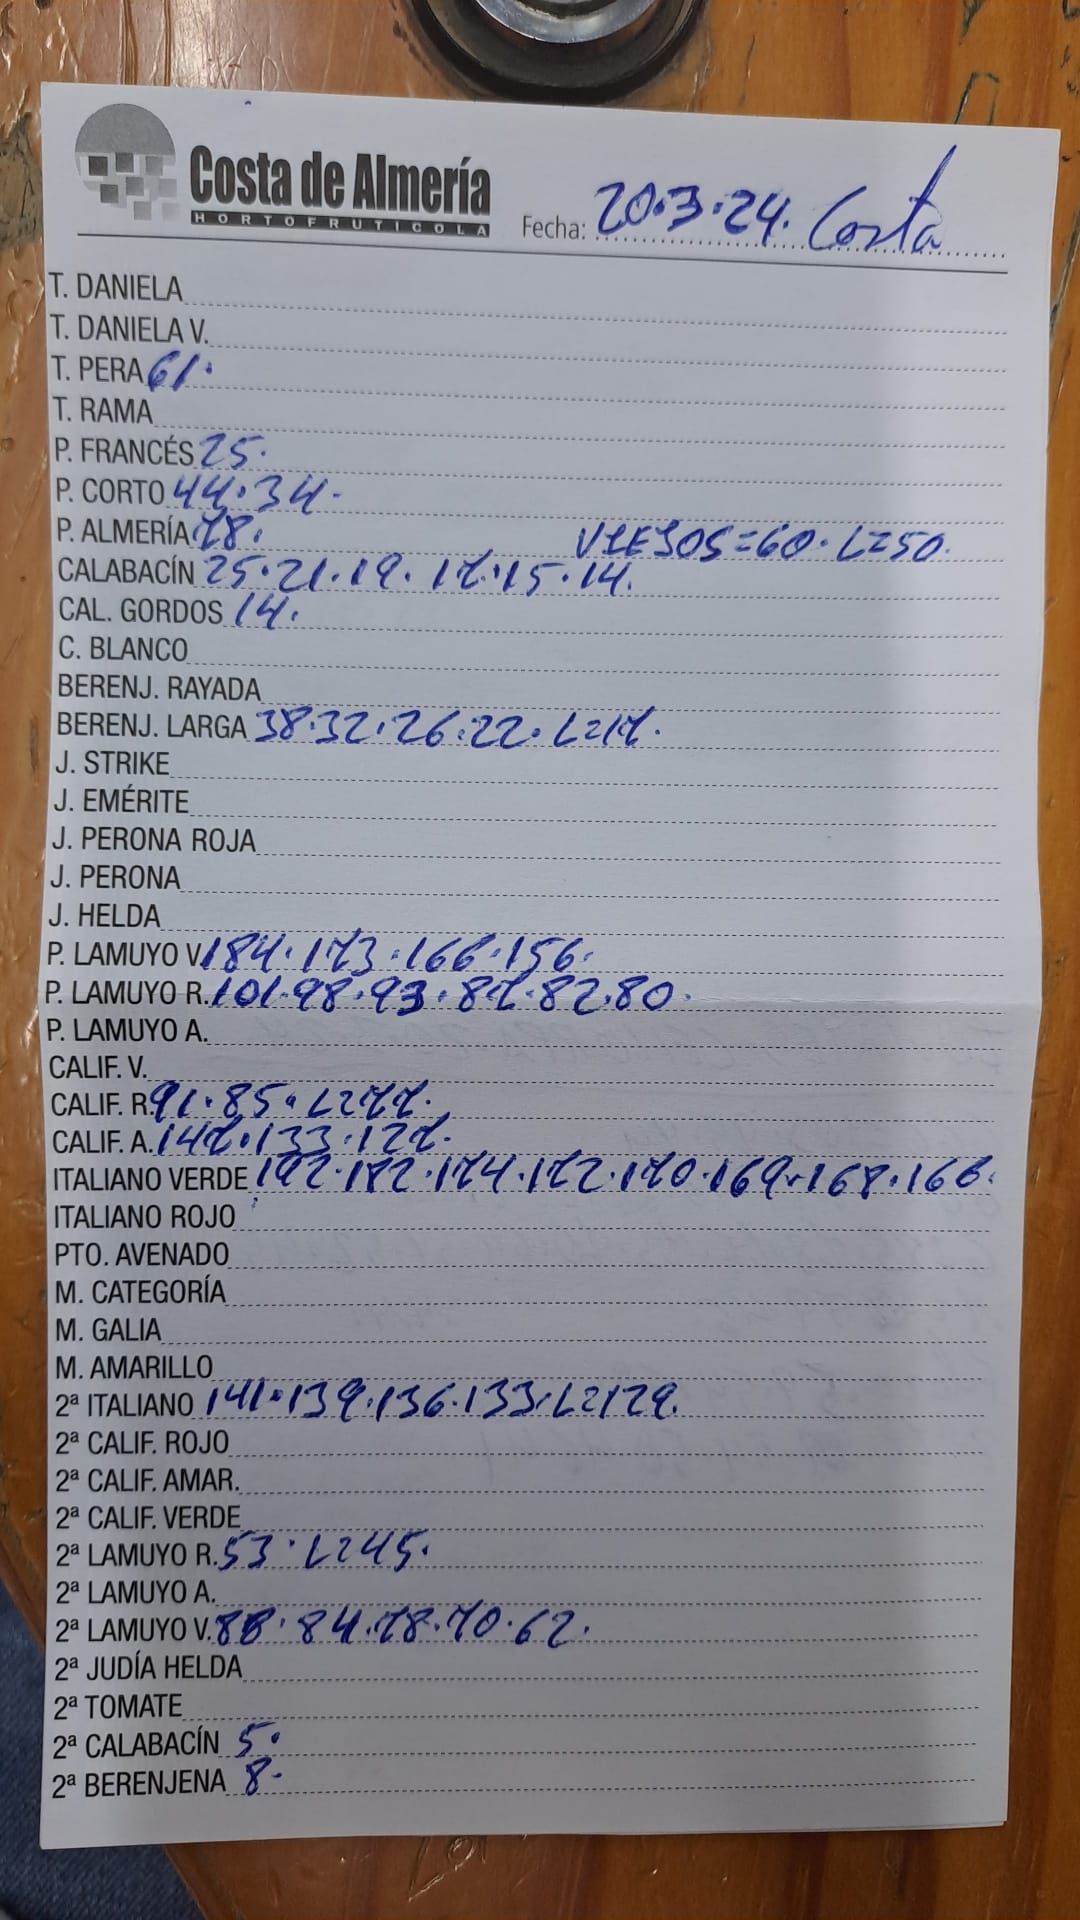 Costa de Almería
HORTOFRUTICOLA
Fecha: 20.3.24. Costa
T. DANIELA
T. DANIELA V.
T. PERA 61.
T. RAMA
P. FRANCÉS 25.
P. CORTO 44.34.
P. ALMERÍA 78. VIEJOS=60. L=50.
CALABACÍN 25.21.19.17.15.14.
CAL. GORDOS 14.
C. BLANCO
BERENJ. RAYADA
BERENJ. LARGA 38.32.26.22. L=17.
J. STRIKE
J. EMÉRITE
J. PERONA ROJA
J. PERONA
J. HELDA
P. LAMUYO V. 184.173.166.156.
P. LAMUYO R. 101.98.93.87.82.80.
P. LAMUYO A.
CALIF. V.
CALIF. R. 91.85. L=77.
CALIF. A. 147.133.127.
ITALIANO VERDE 192.182.174.172.170.169.168.166.
ITALIANO ROJO
PTO. AVENADO
M. CATEGORÍA
M. GALIA
M. AMARILLO
2ª ITALIANO 141.139.136.133. L=129.
2ª CALIF. ROJO
2ª CALIF. AMAR.
2ª CALIF. VERDE
2ª LAMUYO R. 53. L=45.
2ª LAMUYO A.
2ª LAMUYO V. 84.78.70.62.
2ª JUDÍA HELDA
2ª TOMATE
2ª CALABACÍN 5.
2ª BERENJENA 8.